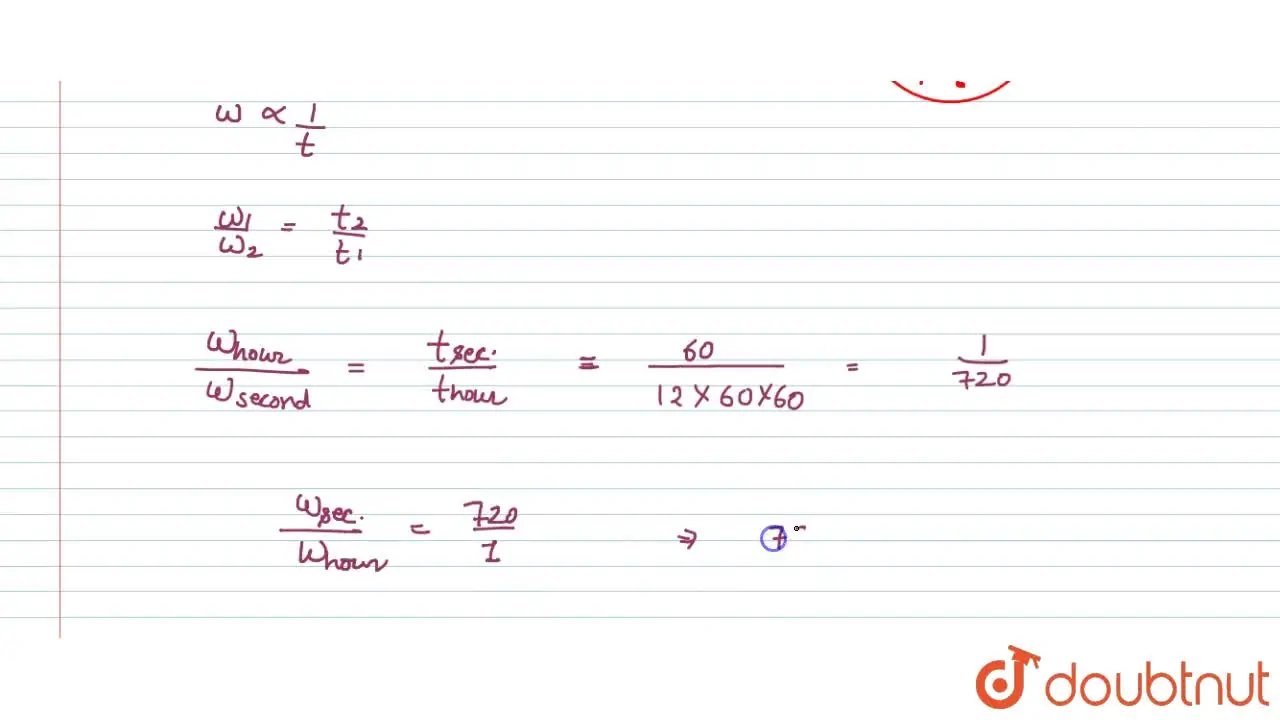 ω ∝ 1/t
ω1/ω2 = t2/t1
ωhour/ωsecond = tsec./thour = 60/12×60×60 = 1/720
ωsec./ωhour = 720/1 ⇒ 7
doubtnut